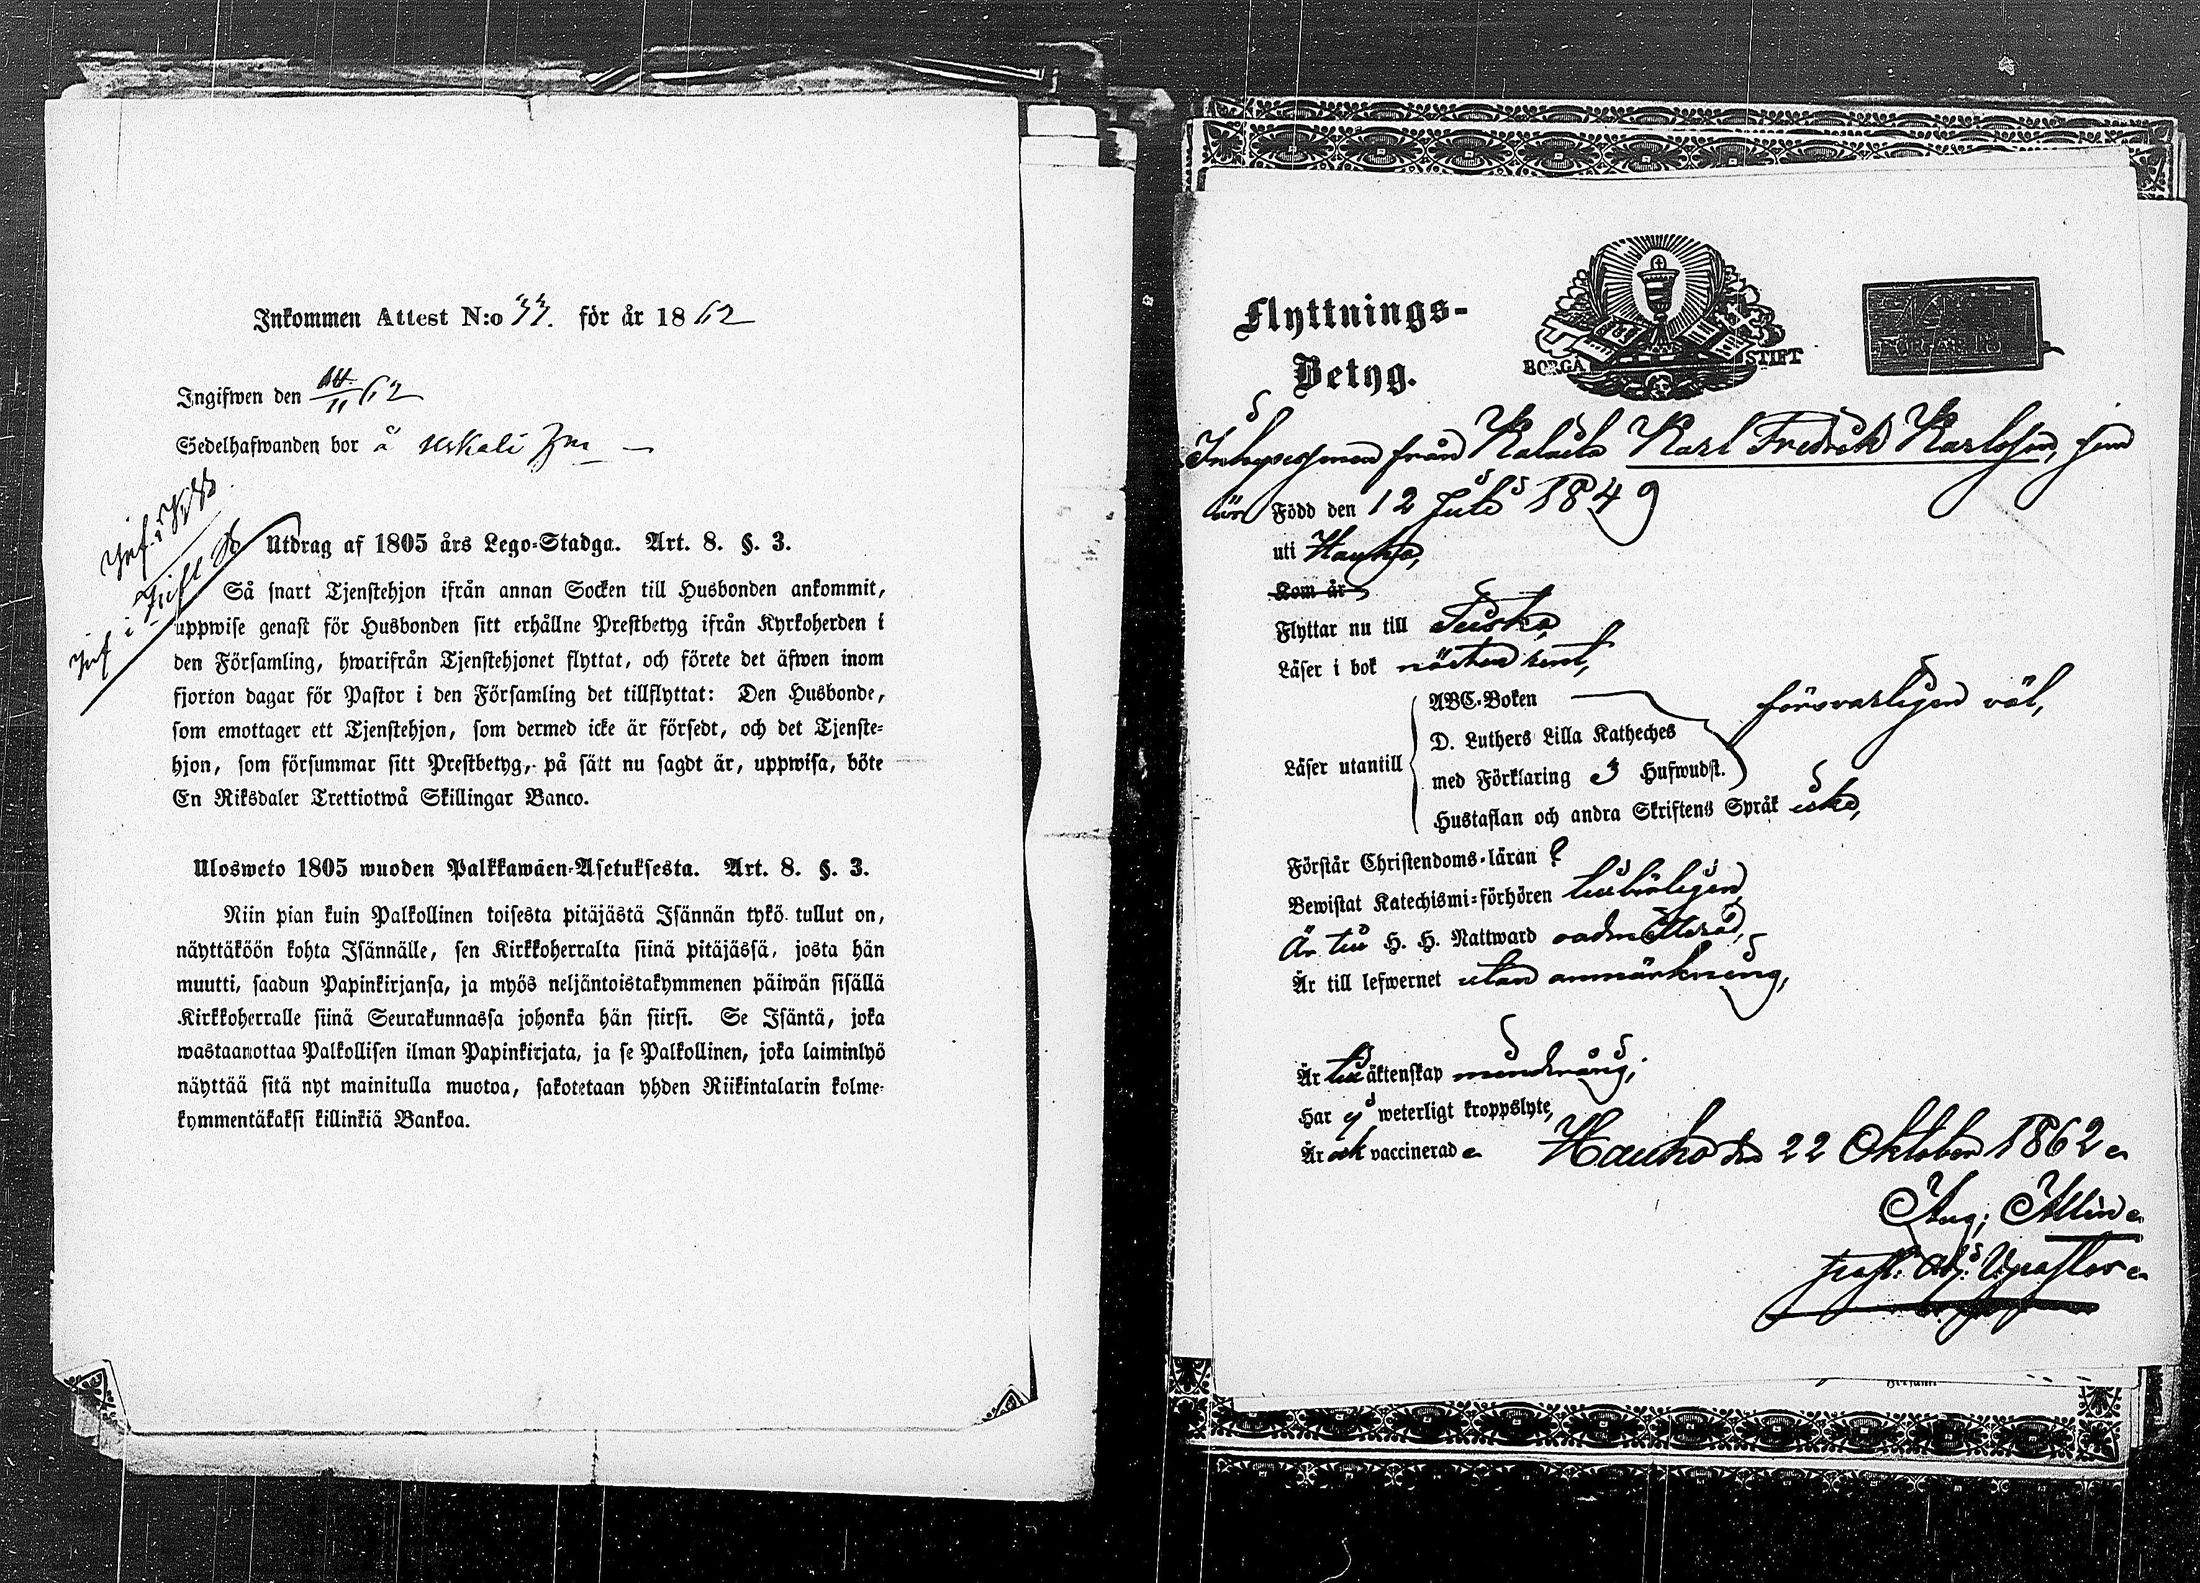 Inkommen Attest N:o 33. för år 1862
Ingifwen den 11 62
Sedelhafwanden bor å Uskali
Inf. i
Inf i
Utdrag af 1805 års Lego-Stadga. Art. 8. §. 3.
Så snart Tjenstehjon ifrån annan Socken till Husbonden ankommit,
uppwise genast för Husbonden sitt erhållne Prestbetyg ifrån Kyrkoherden i
den Församling, hwarifrån Tjenstehjonet flyttat, och förete det äfwen inom
fjorton dagar för Pastor i den Församling det tillflyttat: Den Husbonde,
som emottager ett Tjenstehjon, som dermed icke är försedt, och det Tjenste-
hjon, som försummar sitt Prestbetyg, på sätt nu sagdt är, uppwisa, böte
En Riksdaler Trettiotwå Skillingar Banco.
Ulosweto 1805 wuoden Palkkawäen-Asetuksesta. Art. 8. §. 3.
Niin pian kuin Palkollinen toisesta pitäjästä Isännän tykö tullut on,
näyttäköön kohta Isännälle, sen Kirkkoherralta siinä pitäjässä, josta hän
muutti, saadun Papinkirjansa, ja myös neljäntoistakymmenen päiwän sisällä
Kirkkoherralle siinä Seurakunnassa johonka hän siirsi. Se Isäntä, joka
wastaanottaa Palkollisen ilman Papinkirjata, ja se Palkollinen, joka laiminlyö
näyttää sitä nyt mainitulla muotoa, sakotetaan yhden Riikintalarin kolme-
kymmentäkaksi killinkiä Bankoa.
Flyttnings-
Betyg.
BORGÅ STIFT
Inhysesonen från Karl Fredrik Karlsson, som
är Född den 12 Juli 1849
uti Hauho,
Kom år
Flyttar nu till Tusko,
Läser i bok nästan rent,
ABC-Boken försvarligen väl,
D. Luthers Lilla Katheches
Läser utantill
med Förklaring 3 Hufwudst.
Hustaflan och andra Skriftens Språk icke,
Förstår Christendoms-läran ?
Bewistat Katechismi-förhören tillbörligen,
Är till H. H. Nattward oadmitterad,
Är till lefwernet utan anmärkning,
Är till äktenskap minderårig;
Har ej weterligt kroppslyte,
Är ock vaccinerad Hauho den 22 Oktober 1862
Aug; Allén
past. adj. V.pastor